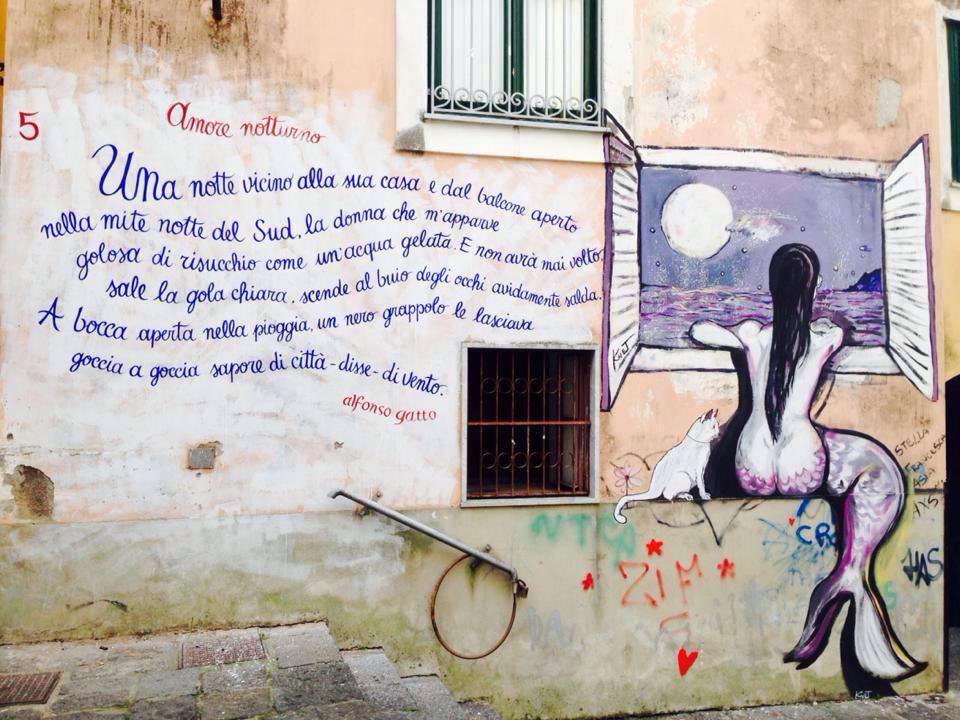 5
Amore notturno
Una notte vicino alla sua casa e dal balcone aperto
nella mite notte del Sud, la donna che m'apparve
golosa di risucchio come un'acqua gelata. E non avrà mai volto.
sale la gola chiara, scende al buio degli occhi avidamente salda.
A bocca aperta nella pioggia, un nero grappolo le lasciava
goccia a goccia sapore di città - disse - di vento.
alfonso gatto
STELLA
ZIM
CR
HAS